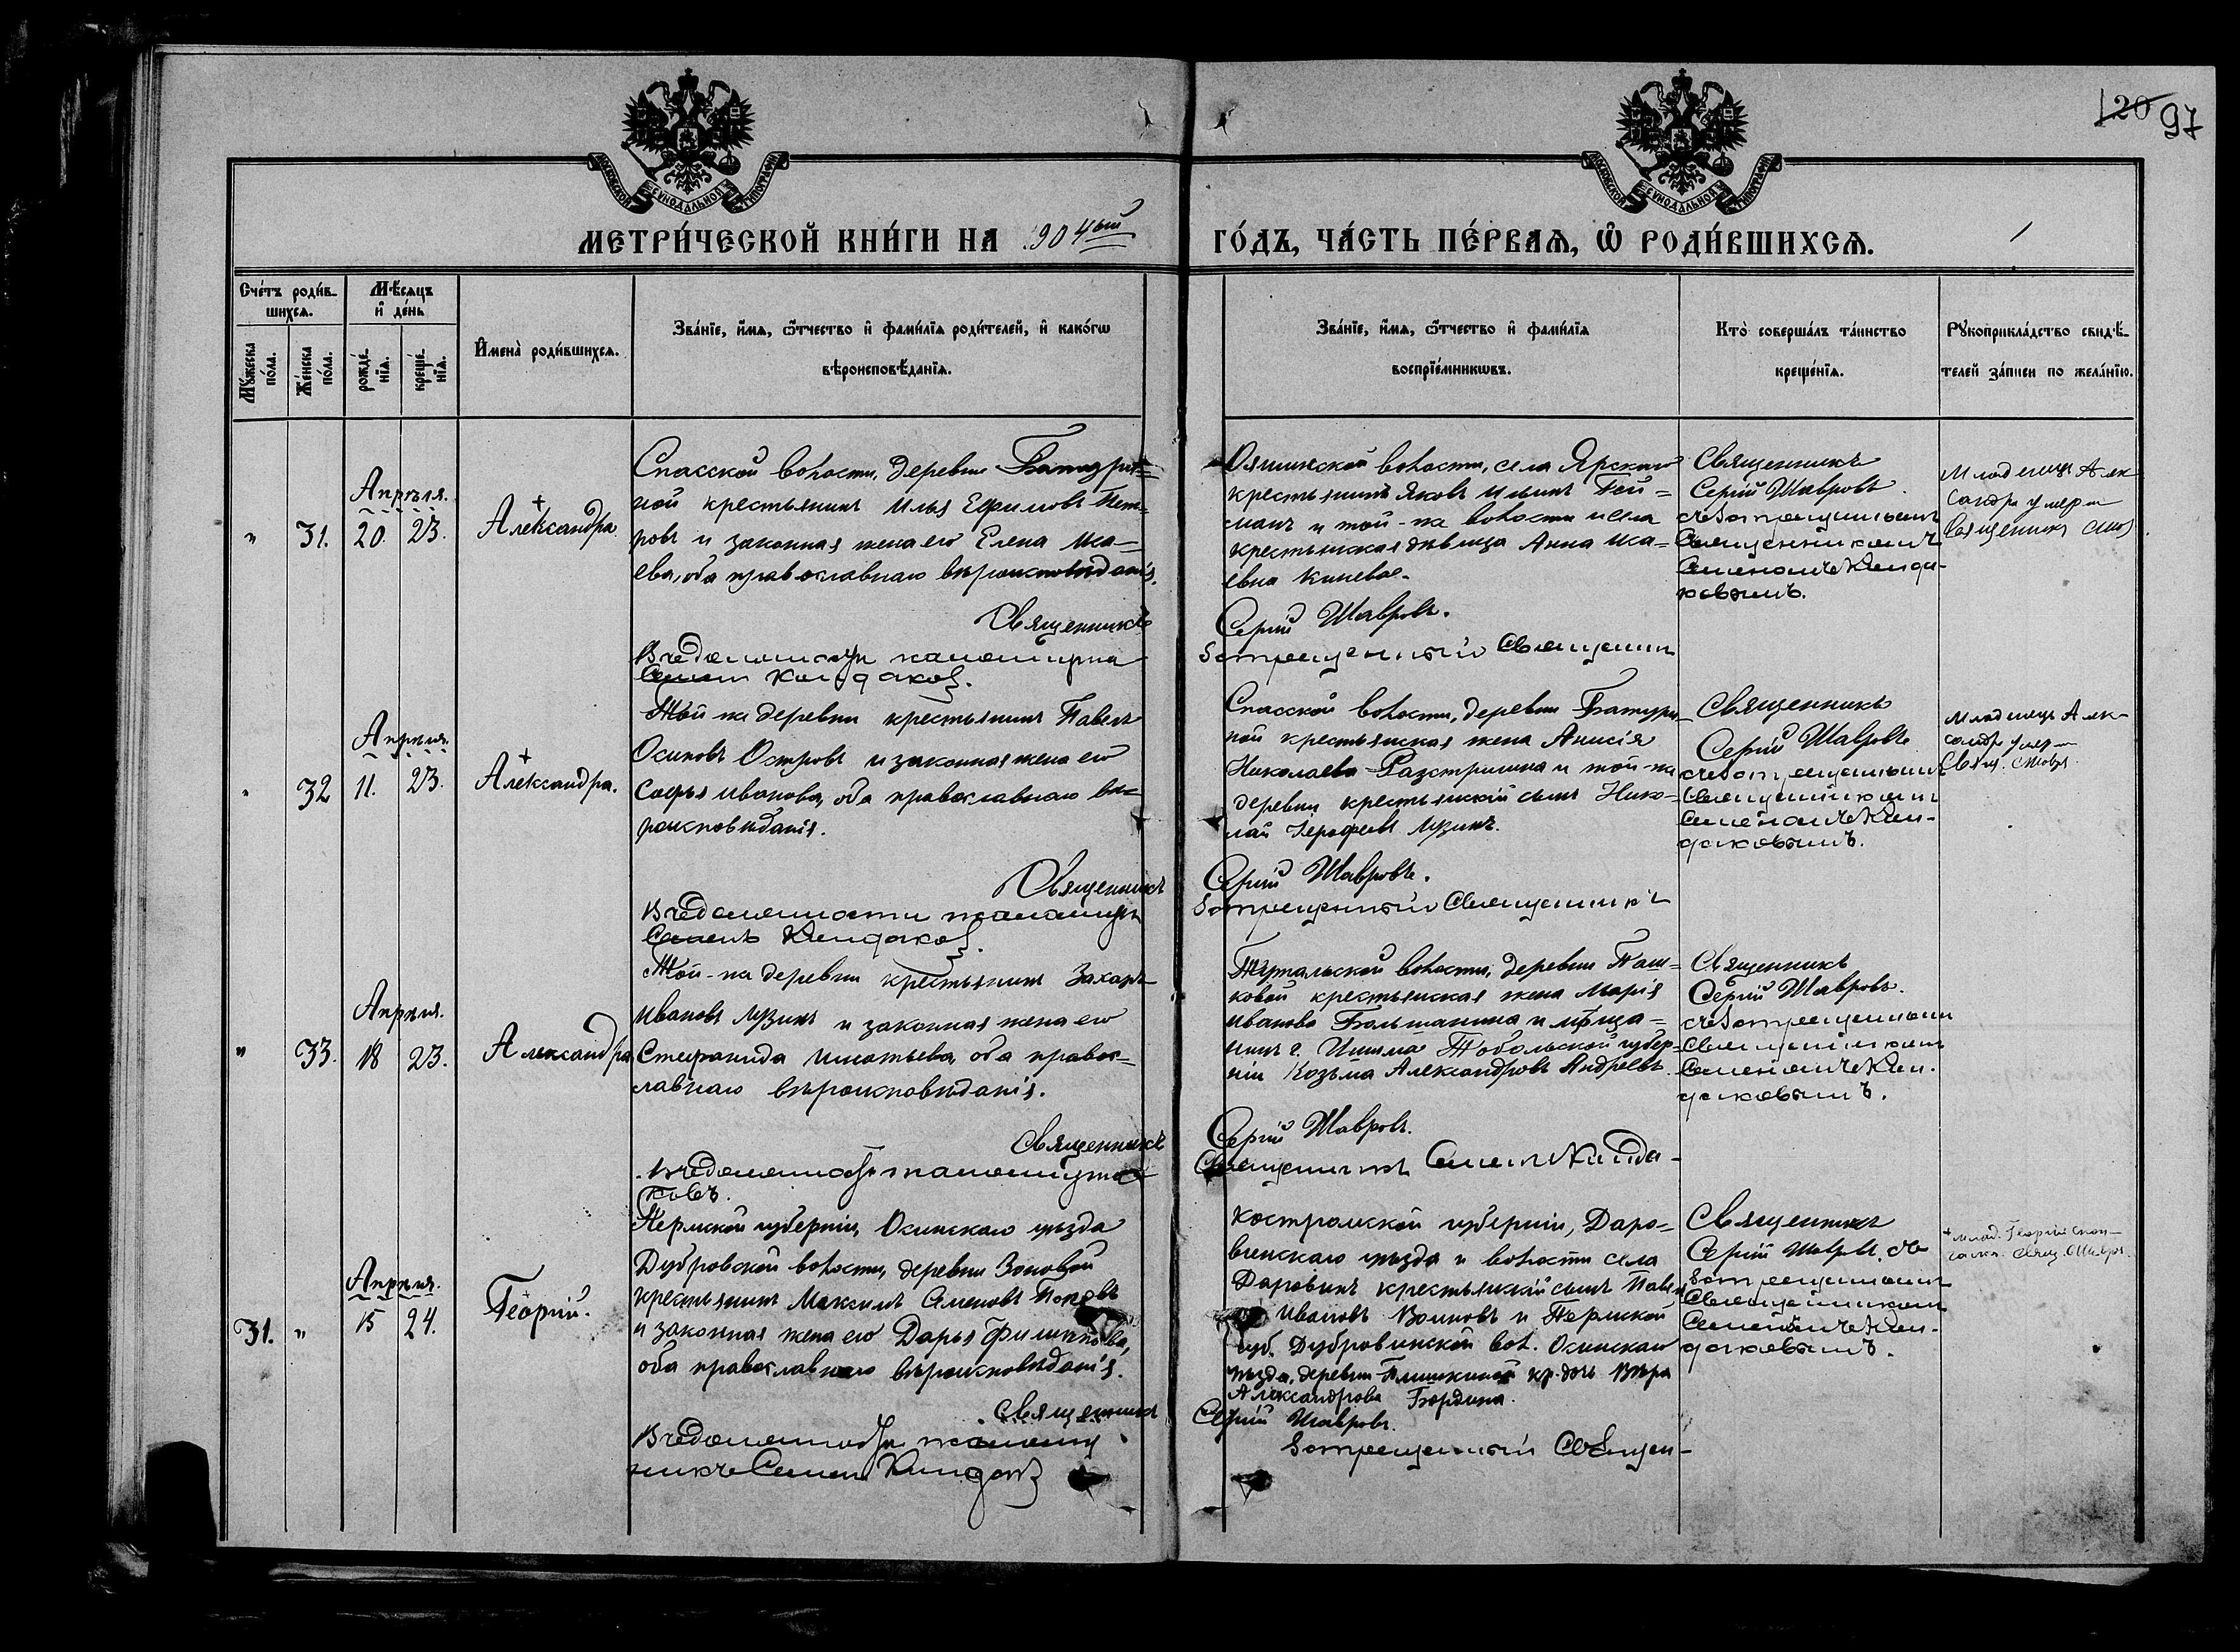 120 97
МОСКОВСКОЙ СѴНОДАЛЬНОЙ ТИПОГРАФІИ
МОСКОВСКОЙ СѴНОДАЛЬНОЙ ТИПОГРАФІИ
МЕТРИ́ЧЕСКОЙ КНИ́ГИ НА 1904ый ГО́ДЪ, ЧА́СТЬ ПЕ́РВАѦ, Ѡ҆ РОДИ́ВШИХСѦ.
Сче́тъ роди́в-
шихсѧ.
Мꙋ́жеска по́ла.
Же́нска по́ла.
Мѣ́сѧцъ и҆ де́нь
рожде́-нїѧ.
креще́-нїѧ.
И҆мена̀ роди́вшихсѧ.
Зва́нїе, и҆́мѧ, ѻ҆́тчество и҆ фами́лїѧ роди́телей, и҆ како́гѡ
вѣроисповѣ́данїѧ.
Зва́нїе, и҆́мѧ, ѻ҆́тчество и҆ фами́лїѧ
воспрїе́мникѡвъ.
Кто̀ соверша́лъ та́инство
креще́нїѧ.
Рꙋкоприкла́дство свидѣ́-
телей за́писи по жела́нїю.
" 31.
Апрѣля.
20. 23.
+
Александра
Спасской волости, деревни Батури-
ной крестьянинъ Илья Ефимовъ Пет-
ровъ и законная жена его Елена Иса-
ева, оба православнаго вѣроисповѣданія.
Священникъ
Семен Кондаков.
Ояшинской волости, села Ярскаго
крестьянинъ Яковъ Ильинъ
и той-же волости и села
крестьянская дѣвица Анна Иса-
евна
Сергій Шавровъ.
Запрещенный Священник
Священникъ
Сергій Шавровъ.
съ запрещеннымъ
Священникомъ
Семеномъ Конда-
ковымъ.
Младенецъ Алек
сандра умерла
Священникъ
" 32
Апрѣля.
11. 23.
+
Александра.
Той-же деревни крестьянинъ Павелъ
Осиповъ Островъ и законная жена его
Софья Иванова, оба православнаго вѣ-
роисповѣданія.
Священникъ
Семенъ Кондаков.
Спасской волости, деревни Батури-
ной крестьянская жена Анисія
Николаева Разстригина и той-же
деревни крестьянскій сынъ Нико-
лай Іерофеевъ Музинъ.
Сергій Шавровъ.
Запрещенный Священникъ
Священникъ
Сергій Шавровъ
съ запрещеннымъ
Священникомъ
Семеномъ Кон-
даковымъ.
Младенецъ Алек-
сандра умерла
Свящ.
" 33.
Апрѣля.
18 23.
Александра
Той-же деревни крестьянинъ Захаръ
Ивановъ Музинъ и законная жена его
Стефанида Игнатьева, оба правос-
лавнаго вѣроисповѣданія.
Священникъ
ковъ.
волости, деревни Таш-
ковой крестьянская жена Марія
Иванова Балтанина и мѣща-
нинъ г. Ишима Тобольской губер-
ніи Козьма Александровъ Андреевъ.
Сергій Шавровъ.
Священникъ Семенъ Конда-
Священникъ
Сергій Шавровъ.
съ запрещеннымъ
Священникомъ
Семеномъ Кон-
даковымъ.
31. "
Апрѣля.
15 24.
Георгій.
Пермской губерніи, Осинскаго уѣзда
Дубровской волости, деревни Зоновой
крестьянинъ Максимъ Семеновъ Поповъ
и законная жена его Дарья Филиппова,
оба православнаго вѣроисповѣданія.
Священникъ
никъ Семенъ Кондаков
Костромской губерніи, Даро-
венскаго уѣзда и волости села
Даровинъ крестьянскій сынъ Павелъ
Ивановъ Воиновъ и Пермской
губ. Дубровинской вол. Осинскаго
уѣзда, деревни Плишкиной кр. дочь Вѣра
Александрова Бордина.
Сергій Шавровъ.
Запрещенный Священ-
Священникъ
Сергій Шавровъ, съ
запрещеннымъ
Священникомъ
Семеномъ Кон-
даковымъ.
+ млад. Георгій скон-
чался. Свящ. С. Шавровъ.